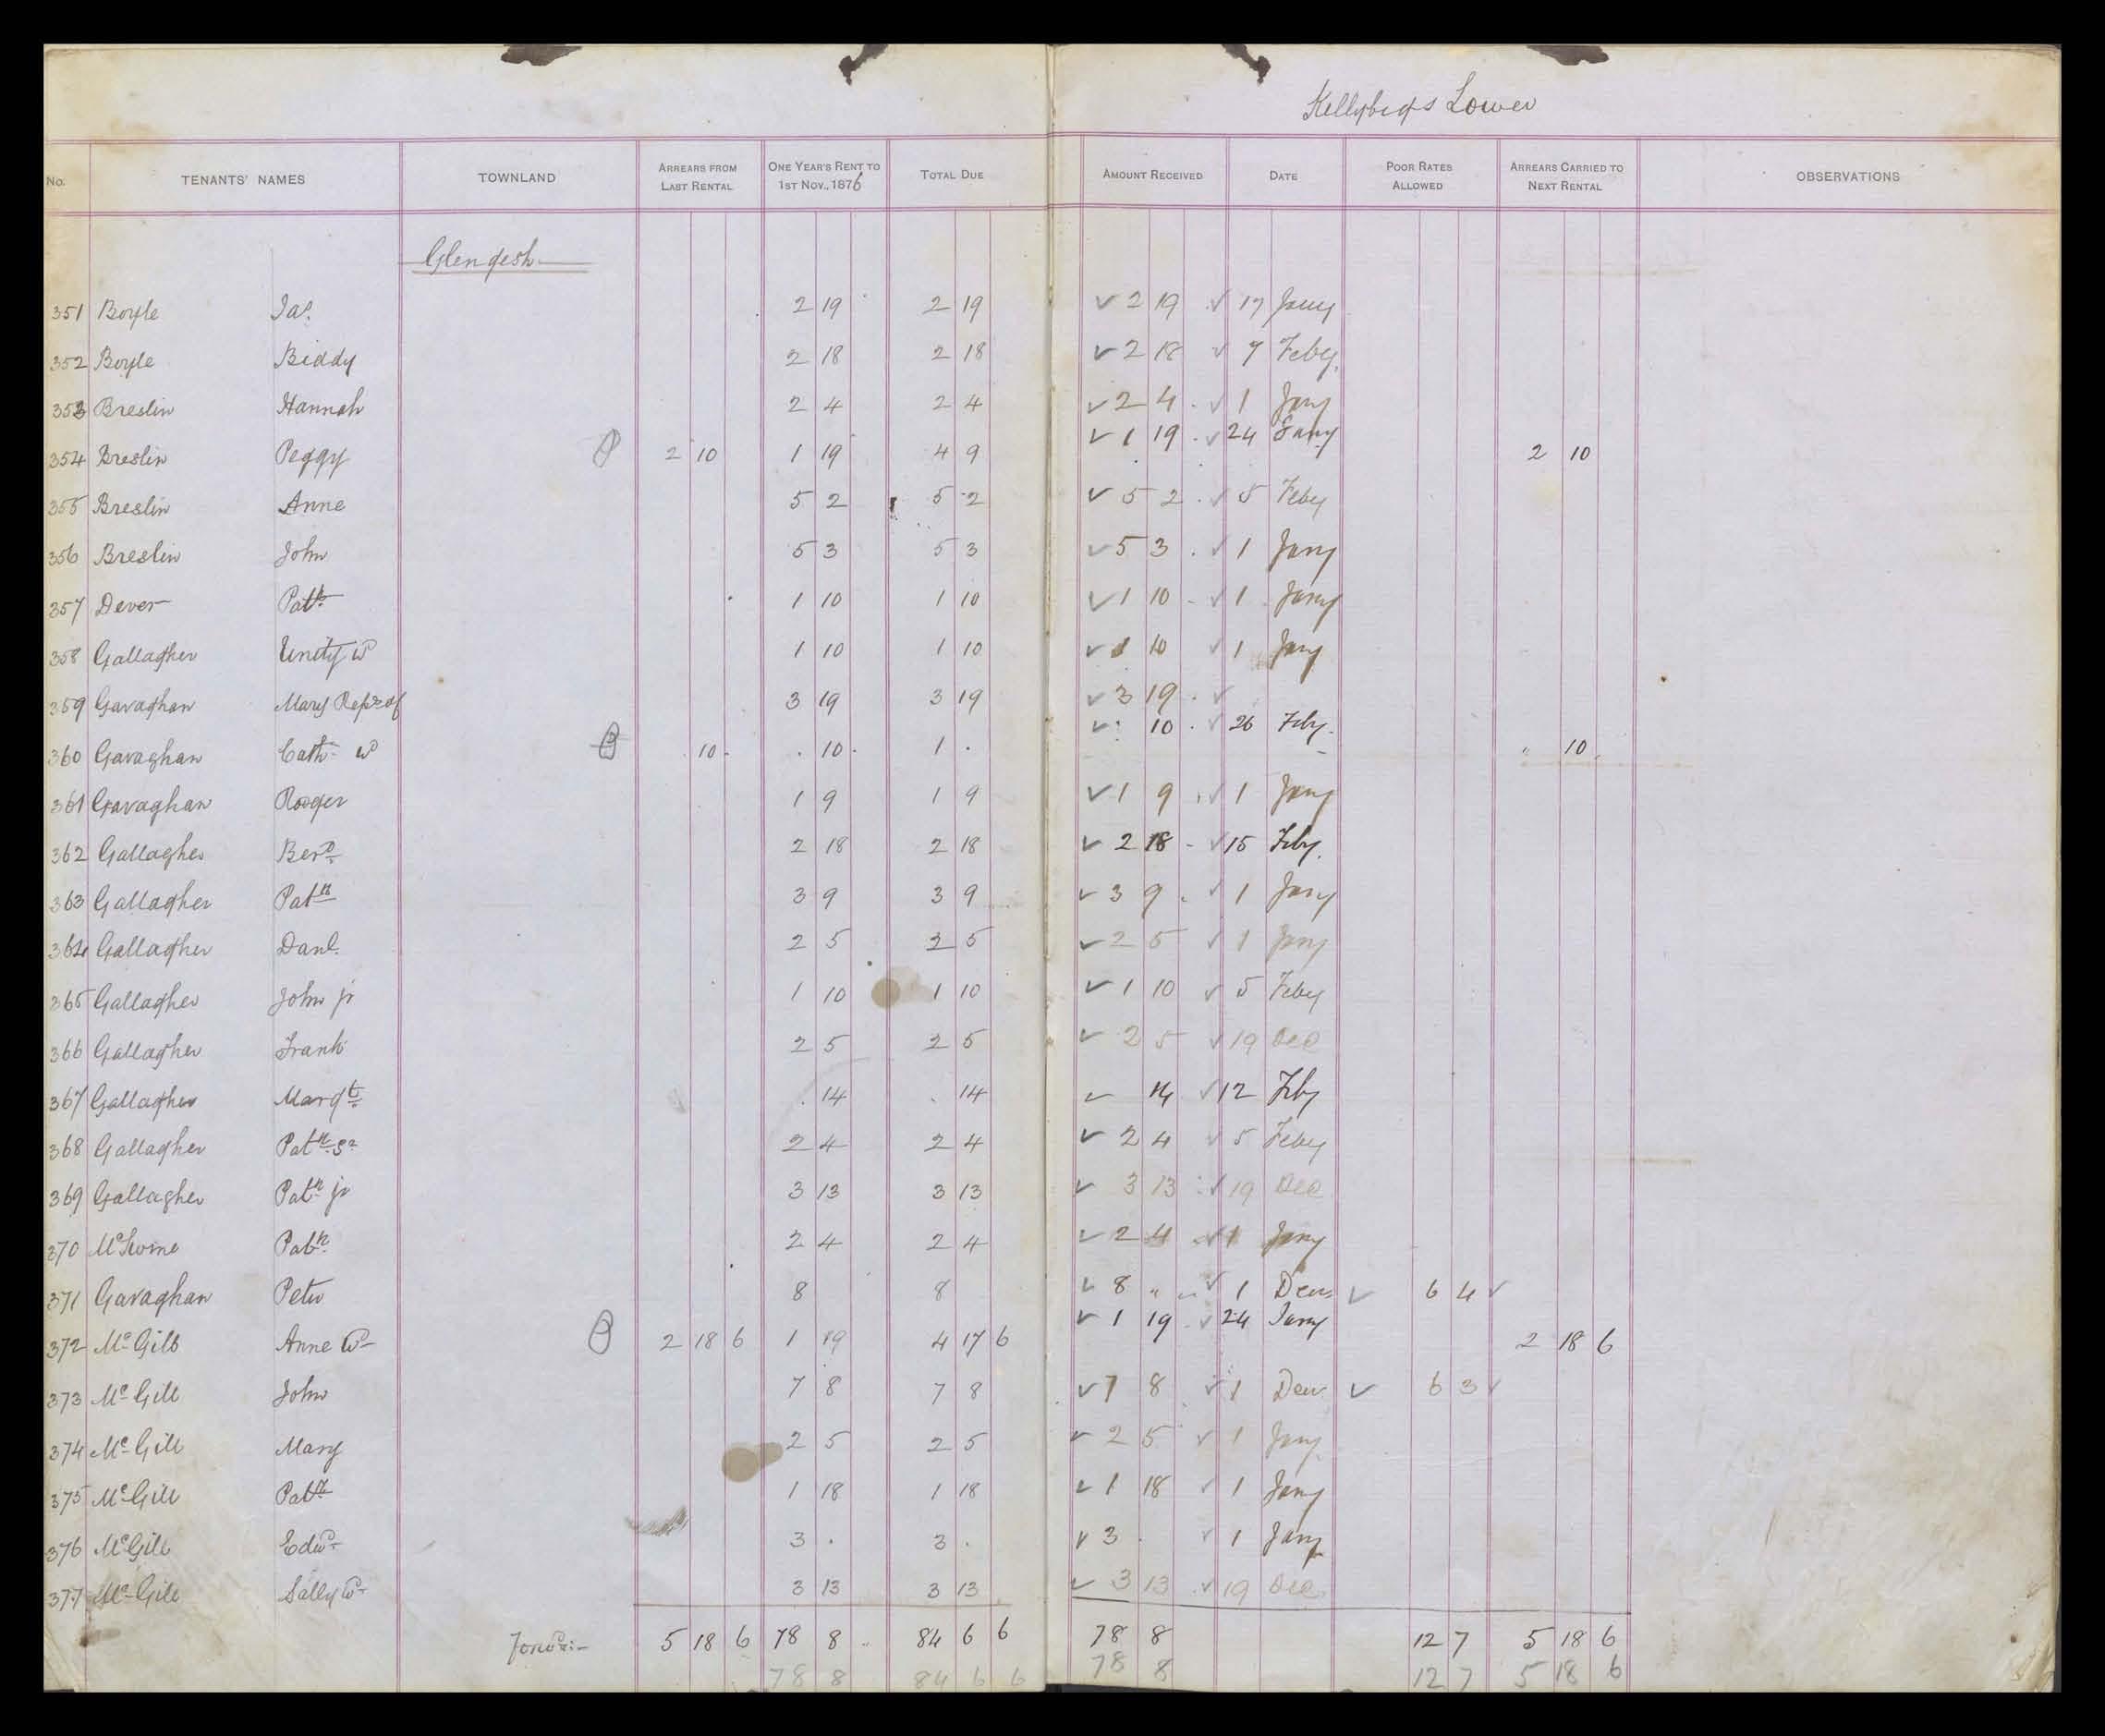 Kellybegs Lower
No. TENANTS' NAMES TOWNLAND ARREARS FROM LAST RENTAL ONE YEAR'S RENT TO 1ST NOV., 1876 TOTAL DUE AMOUNT RECEIVED DATE POOR RATES ALLOWED ARREARS CARRIED TO NEXT RENTAL OBSERVATIONS
Glengesh
351 Boyle Jas. 2 19 2 19 ✓ 2 19 ✓ 17 Jany
352 Boyle Biddy 2 18 2 18 ✓ 2 18 ✓ 7 Feby.
353 Breslin Hannah 2 4 2 4 ✓ 2 4 . ✓ 1 Jany
354 Breslin Peggy 2 10 1 19 4 9 ✓ 1 19 . ✓ 24 Jany 2 10
355 Breslin Anne 5 2 5 2 ✓ 5 2 . ✓ 5 Feby
356 Breslin John 5 3 5 3 ✓ 5 3 . ✓ 1 Jany
357 Dever Patk. 1 10 1 10 ✓ 1 10 - ✓ 1 Jany
358 Gallagher Unity wd 1 10 1 10 ✓ 1 10 ✓ 1 Jany
359 Gavaghan Mary Repr of 3 19 3 19 ✓ 3 19 . ✓
360 Gavaghan Cath wd 10 . . 10 . 1 . ✓ 10 . ✓ 26 Feby. " 10 .
361 Gavaghan Roger 1 9 1 9 ✓ 1 9 . ✓ 1 Jany
362 Gallagher Berd 2 18 2 18 ✓ 2 18 - ✓ 15 Feby.
363 Gallagher Patk 3 9 3 9 ✓ 3 9 . ✓ 1 Jany
364 Gallagher Danl. 2 5 2 5 ✓ 2 5 ✓ 1 Jany
365 Gallagher John jr 1 10 1 10 ✓ 1 10 ✓ 5 Feby
366 Gallagher Frank 2 5 2 5 ✓ 2 5 ✓ 19 Dec
367 Gallagher Margt. . 14 . 14 ✓ 14 ✓ 12 Feby
368 Gallagher Patk Sr 2 4 2 4 ✓ 2 4 ✓ 5 Feby
369 Gallagher Patk jr 3 13 3 13 ✓ 3 13 ✓ 19 Dec
370 Patk. 2 4 2 4 ✓ 2 4 ✓ 1 Jany
371 Gavaghan Peter 8 8 ✓ 8 " " ✓ 1 Decr ✓ 6 4 ✓
372 McGill Anne Wd 2 18 6 1 19 4 17 6 ✓ 1 19 ✓ 24 Jany 2 18 6
373 McGill John 7 8 7 8 ✓ 7 8 ✓ 1 Decr ✓ 6 3 ✓
374 McGill Mary 2 5 2 5 ✓ 2 5 ✓ 1 Jany
375 McGill Patk 1 18 1 18 ✓ 1 18 ✓ 1 Jany
376 McGill Edwd 3 . 3 . ✓ 3 . ✓ 1 Jany
377 McGill Sally Wd 3 13 3 13 ✓ 3 13 ✓ 19 Dec
Forwd:- 5 18 6 78 8 " 84 6 6 78 8 12 7 5 18 6
78 8 84 6 6 78 8 12 7 5 18 6